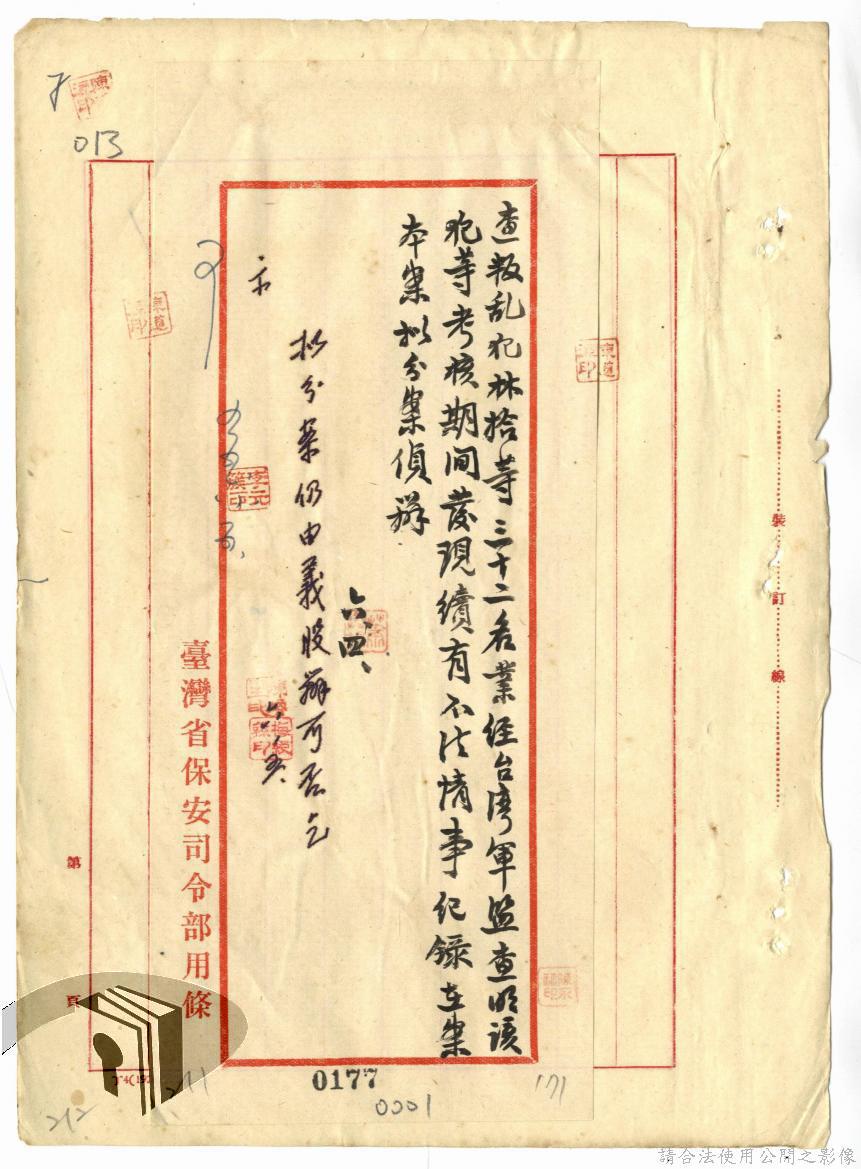 013
查叛乱犯林拾等三十二名業經台湾軍監查明該
犯等考核期间發現續有不法情事纪錄在案
本案拟分案偵辦
六、四、
拟分案仍由義股辦可否乞
示
臺灣省保安司令部用條
裝訂線
第
頁
0177
0001
171
211
212
請合法使用公開之影像